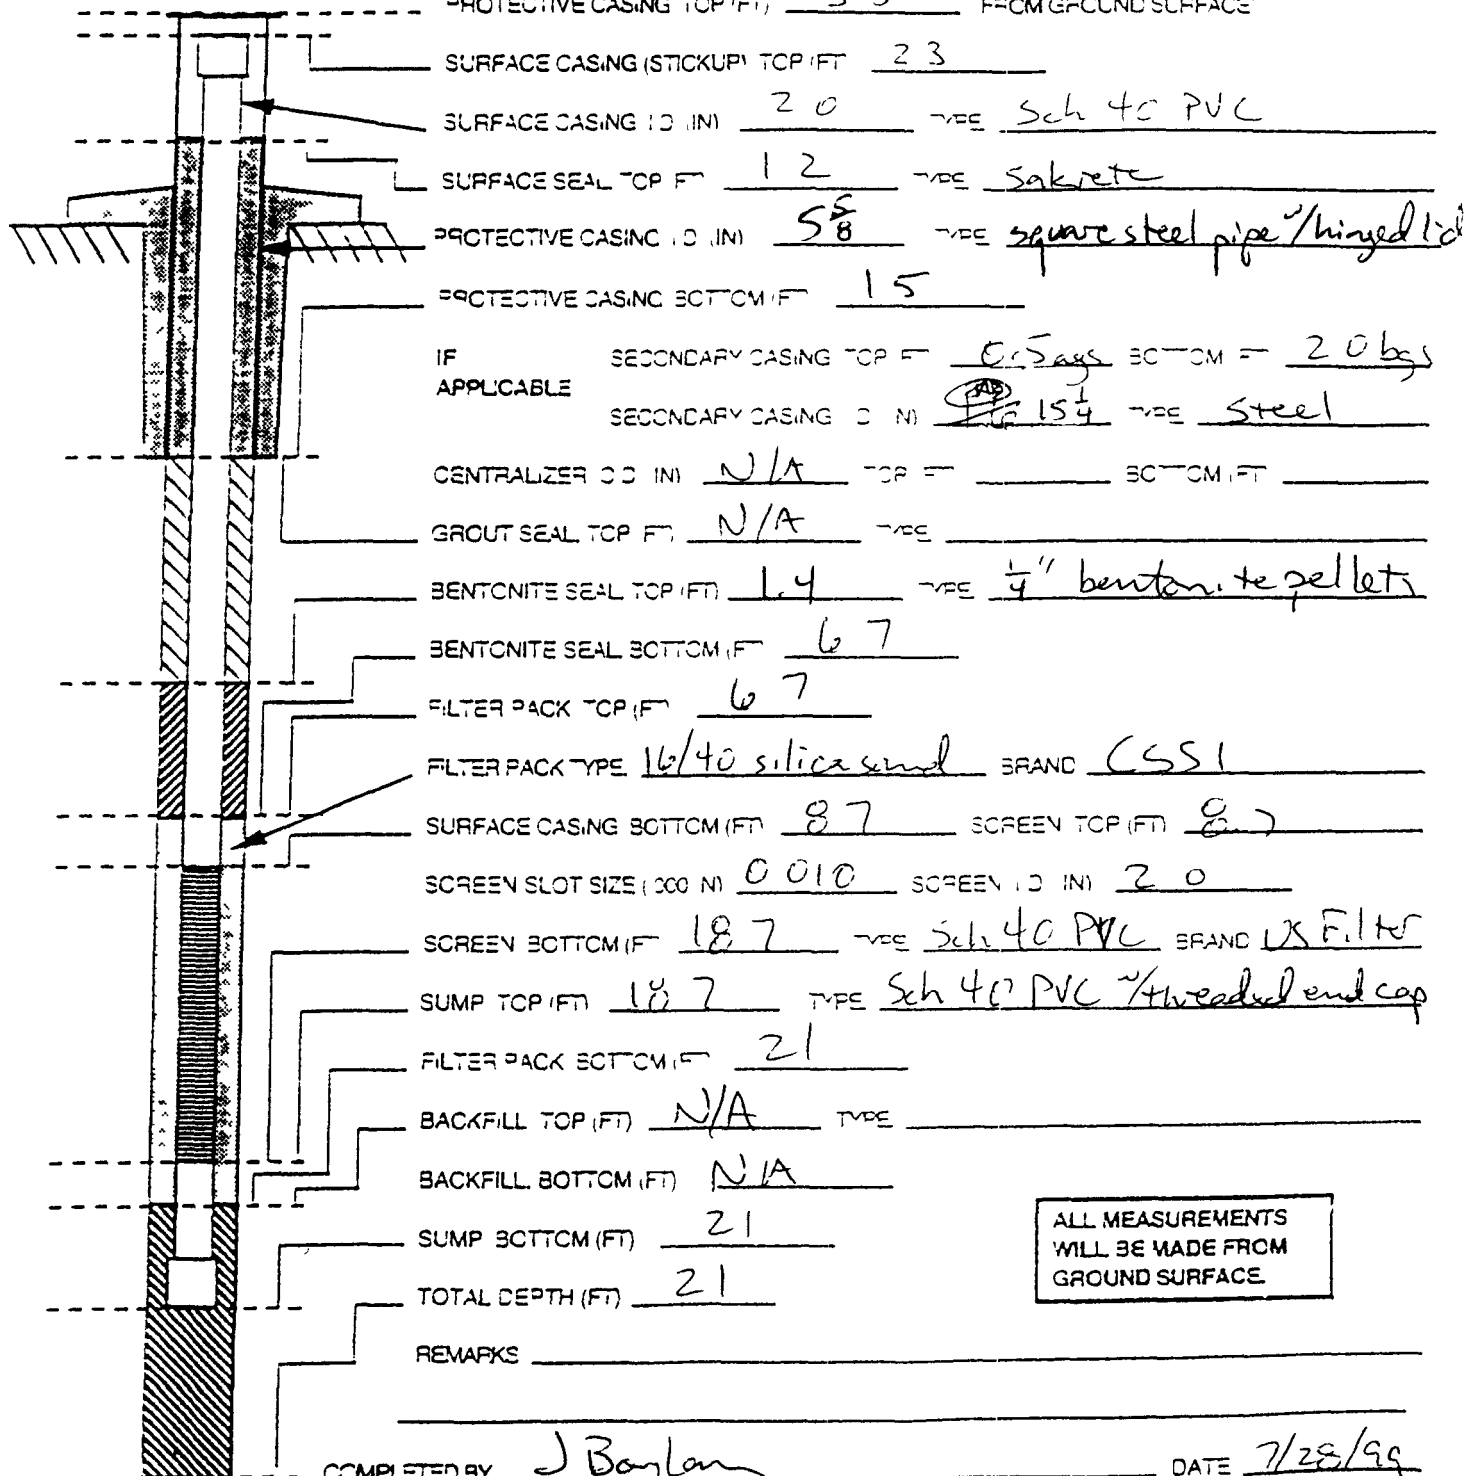 PROTECTIVE CASING TOP (FT) FROM GROUND SURFACE
SURFACE CASING (STICKUP) TOP (FT 2 3
SURFACE CASING I D (IN) 2 0 TYPE Sch 40 PVC
SURFACE SEAL TOP FT 1 2 TYPE Sakrete
PROTECTIVE CASING I D (IN) 5 5/8 TYPE square steel pipe w/hinged lid
PROTECTIVE CASING BOTTOM (FT 1 5
IF APPLICABLE SECONDARY CASING TOP FT 0.5 ags BOTTOM FT 2 0 bgs
SECONDARY CASING I D IN) 15 1/4 TYPE Steel
CENTRALIZER O D (IN) N/A TOP FT BOTTOM (FT
GROUT SEAL TOP FT) N/A TYPE
BENTONITE SEAL TOP (FT) 1.4 TYPE 1/4" bentonite pellets
BENTONITE SEAL BOTTOM (FT 6 7
FILTER PACK TOP (FT) 6 7
FILTER PACK TYPE 16/40 silica sand BRAND CSSI
SURFACE CASING BOTTOM (FT) 8 7 SCREEN TOP (FT) 8.7
SCREEN SLOT SIZE (000 IN) 0 010 SCREEN I D IN) 2 0
SCREEN BOTTOM (FT 18 7 TYPE Sch 40 PVC BRAND US Filter
SUMP TOP (FT) 18 7 TYPE Sch 40 PVC w/threaded end cap
FILTER PACK BOTTOM (FT 21
BACKFILL TOP (FT) N/A TYPE
BACKFILL BOTTOM (FT) N/A
SUMP BOTTOM (FT) 21
ALL MEASUREMENTS
WILL BE MADE FROM
GROUND SURFACE
TOTAL DEPTH (FT) 21
REMARKS
COMPLETED BY J Boylan DATE 7/28/99